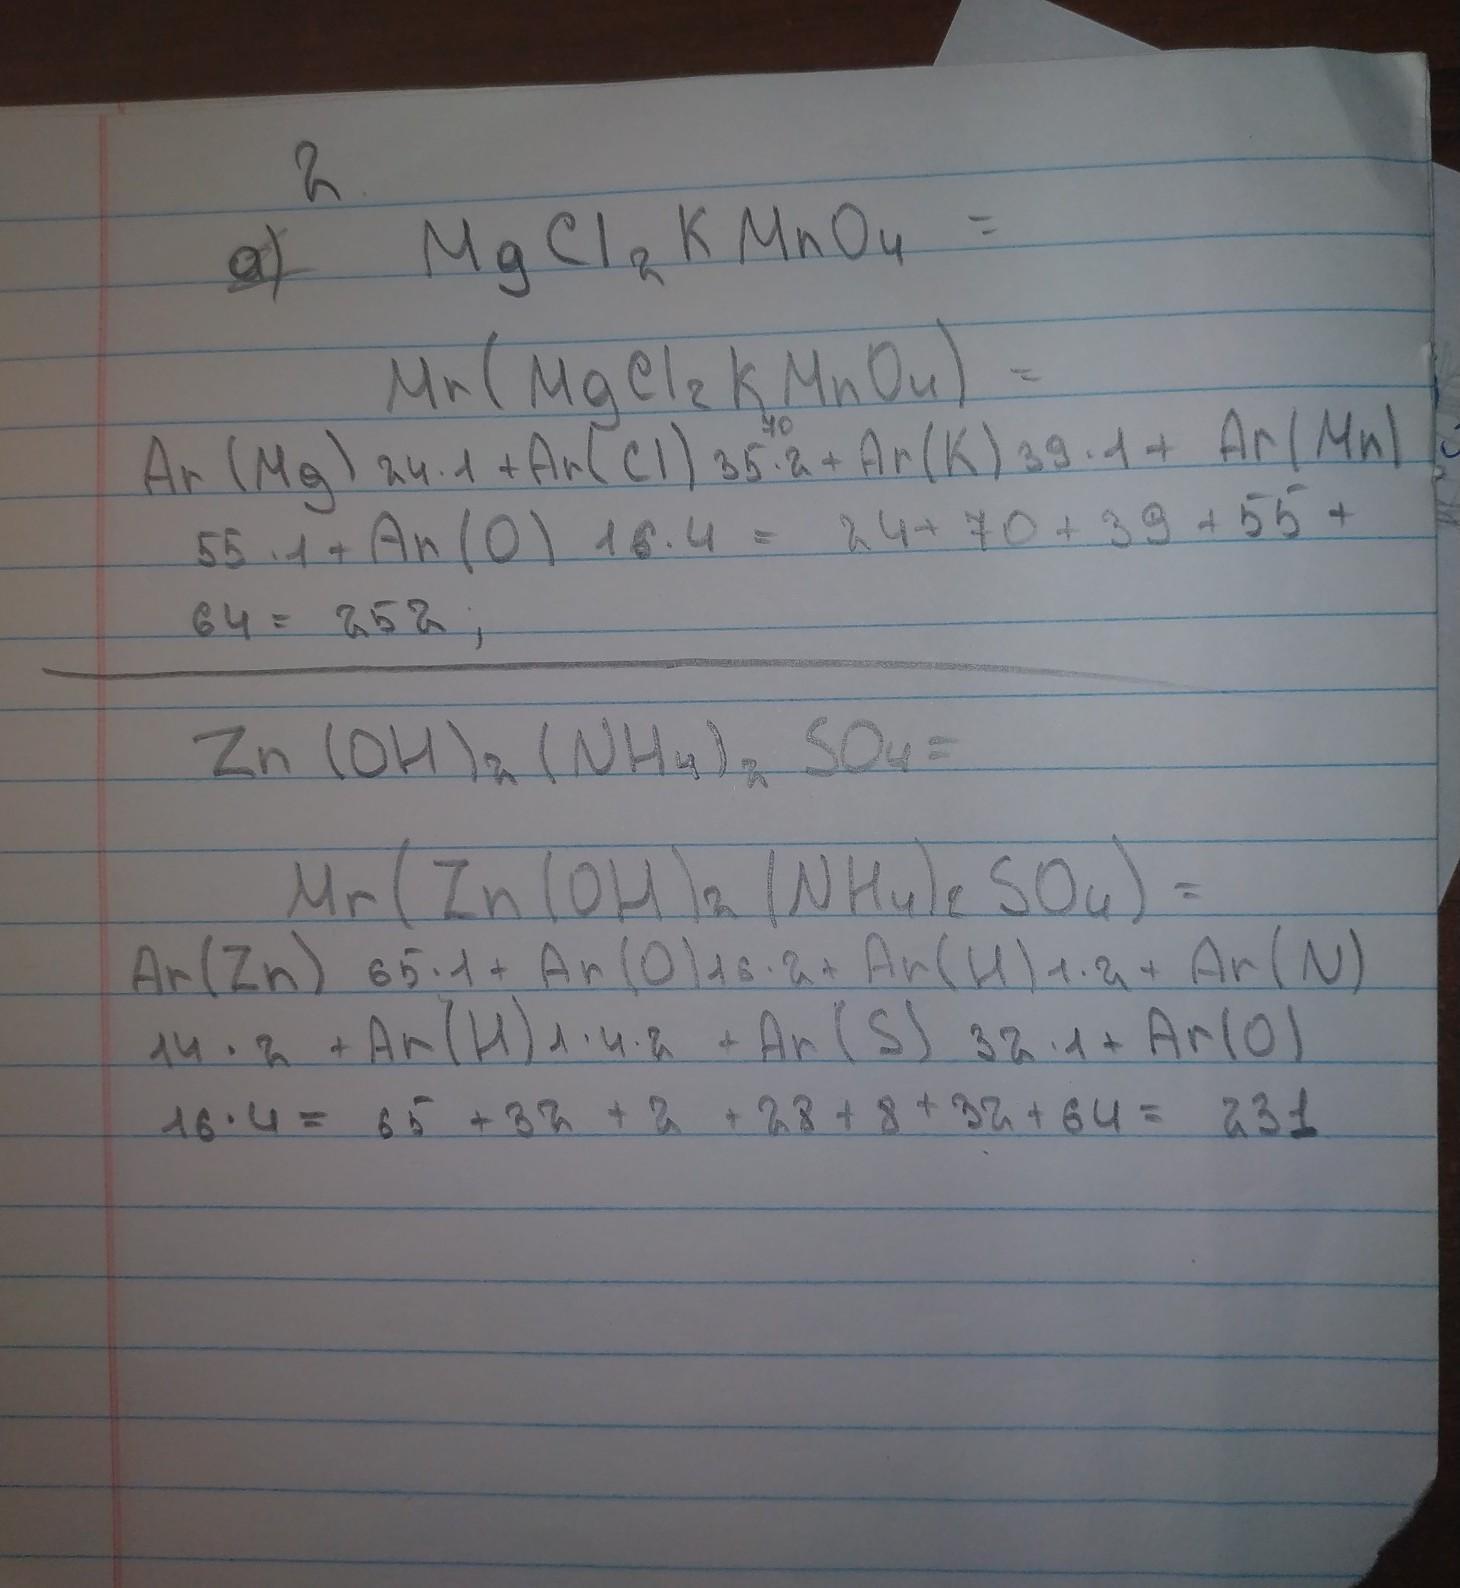 2.
a) MgCl₂KMnO₄ =
Mr(MgCl₂KMnO₄) =
70
Ar(Mg) 24·1 + Ar(Cl) 35·2 + Ar(K) 39·1 + Ar(Mn)
55·1 + Ar(O) 16·4 = 24 + 70 + 39 + 55 +
64 = 252;
Zn(OH)₂(NH₄)₂ SO₄ =
Mr(Zn(OH)₂(NH₄)₂ SO₄) =
Ar(Zn) 65·1 + Ar(O) 16·2 + Ar(H) 1·2 + Ar(N)
14·2 + Ar(H) 1·4·2 + Ar(S) 32·1 + Ar(O)
16·4 = 65 + 32 + 2 + 28 + 8 + 32 + 64 = 231